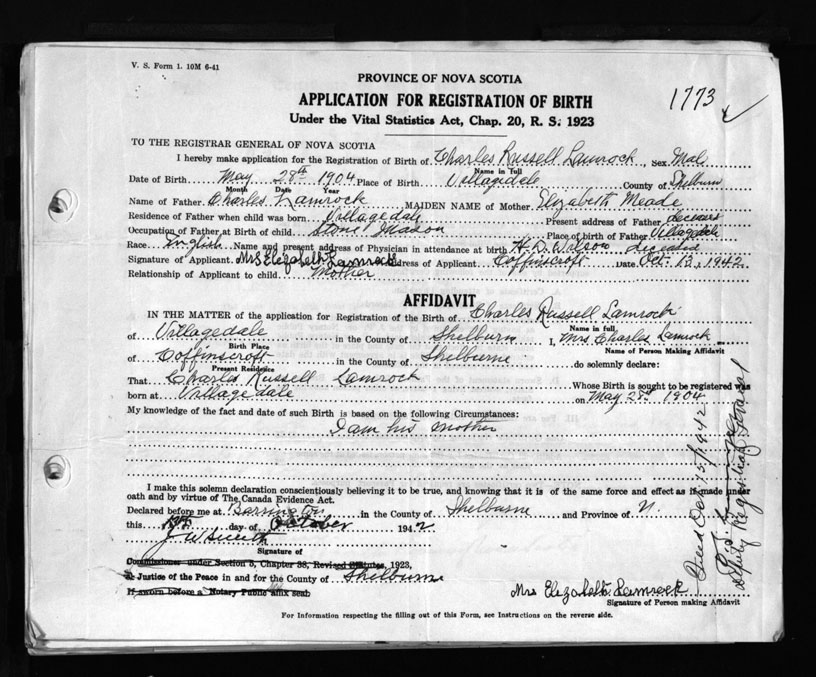 V. S. Form 1. 10M 6-41
PROVINCE OF NOVA SCOTIA
1773
APPLICATION FOR REGISTRATION OF BIRTH
Under the Vital Statistics Act, Chap. 20, R. S. 1923
TO THE REGISTRAR GENERAL OF NOVA SCOTIA
I hereby make application for the Registration of Birth of Charles Russell Lamrock, Sex Male
Name in Full
Date of Birth May 28th 1904 Place of Birth Villagedale County of Shelburn
Month Date Year
Name of Father Charles Lamrock MAIDEN NAME of Mother Elizabeth Meade
Residence of Father when child was born Villagedale Present address of Father deceased
Occupation of Father at Birth of child Stone Mason Place of birth of Father Villagedale
Race English Name and present address of Physician in attendance at birth H. D. Wilson deceased
Signature of Applicant Mrs Elezabeth Lamrock Address of Applicant Coffinscroft Date Oct. 13, 1942
Relationship of Applicant to child Mother
AFFIDAVIT
IN THE MATTER of the application for Registration of the Birth of Charles Russell Lamrock
Name in full
of Villagedale in the County of Shelburn I, Mrs. Charles Lamrock
Birth Place Name of Person Making Affidavit
of Coffinscroft in the County of Shelburne do solemnly declare:
Present Residence
That Charles Russell Lamrock Whose Birth is sought to be registered was
born at Villagedale on May 28th 1904
My knowledge of the fact and date of such Birth is based on the following Circumstances:
I am his mother
I make this solemn declaration conscientiously believing it to be true, and knowing that it is of the same force and effect as if made under
oath and by virtue of The Canada Evidence Act.
Declared before me at Barrington in the County of Shelburne and Province of N.
this day of October 1942
J W Smith
Signature of
Commissioner under Section 5, Chapter 38, Revised Statutes, 1923,
A Justice of the Peace in and for the County of Shelburne
If sworn before a Notary Public affix seal.
Mrs Elezabeth Lamrock
Signature of Person making Affidavit
For Information respecting the filling out of this Form, see Instructions on the reverse side.
Filed Oct 15/1942
Deputy Registrar General